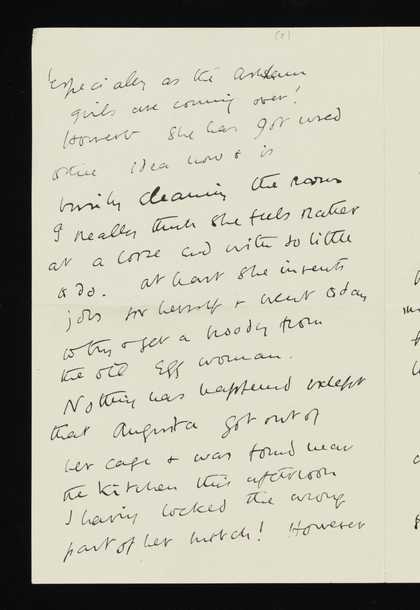 (2)
especially as the Asham
girls are coming over!
However she has got used
to the idea now & is
busily cleaning the rooms
I really think she feels rather
at a loose end with so little
to do. At least she invents
jobs for herself & went today
to try & get a broody from
the old Egg woman.
Nothing has happened except
that Augusta got out of
her cage & was found near
the kitchen this afternoon
I having locked the wrong
part of her hutch! However